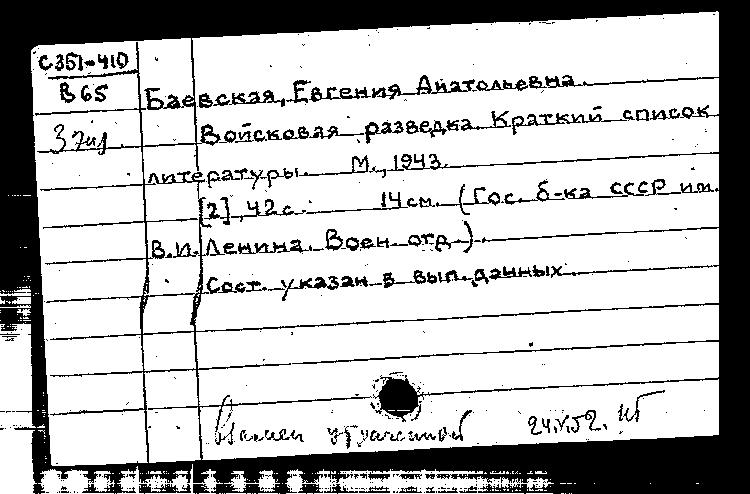 С351-410
В65
Баевская, Евгения Анатольевна.
3 экз.
Войсковая разведка. Краткий список
литературы. М., 1943.
[2], 42 с. 14 см. (Гос. б-ка СССР им.
В.И. Ленина. Воен. отд.).
Сост. указан в вып. данных.
Взамен утраченной 24.V.52.